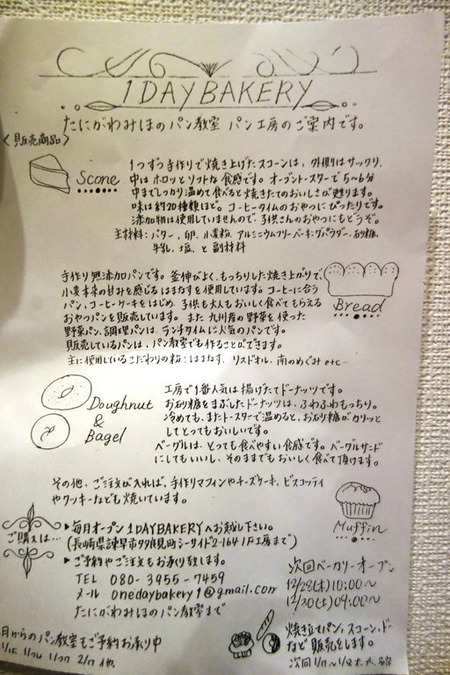 1DAY BAKERY
たにがわみほのパン教室 パン工房のご案内です。
〈販売商品〉
Scone
1つずつ手作りで焼き上げたスコーンは、外側はサックリ、
中はホロッとソフトな食感です。オーブントースターで5~6分
中までしっかり温めて食べると焼きたてのおいしさが甦ります。
味は約20種類ほど。コーヒータイムのおやつにぴったりです。
添加物は使用していませんので、子供さんのおやつにもどうぞ。
主材料:バター、卵、小麦粉、アルミニウムフリーベーキングパウダー、砂糖、
牛乳、塩、と副材料
手作り無添加パンです。釜伸びよく、もっちりした焼き上がりで、
小麦本来の甘みを感じるはるまなを使用しています。コーヒーに合う
パン、コーヒーケーキをはじめ、子供も大人もおいしく食べてもらえる
おやつパンを販売しています。また九州産の野菜を使った
野菜パン、調理パンは、ランチタイムに人気のパンです。
販売しているパンは、パン教室でも作ることができます。
主に使用しているこだわりの粉:はるまな、リスドオル、南のめぐみ etc-
Bread
Doughnut
&
Bagel
工房で1番人気は揚げたてドーナッツです。
お砂糖をまぶしたドーナッツは、ふわふわもっちり。
冷めても、またトースターで温めると、お砂糖がカリッと
してとってもおいしいです。
ベーグルは、とっても食べやすい食感です。ベーグルサンド
にしてもいいし、そのままでもおいしく食べて頂けます。
その他、ご注文が入れば、手作りマフィンやチーズケーキ、ビスコッティ
やクッキーなども焼いています。
Muffin
ご購入は…
▶毎月オープン1DAY BAKERYへお越し下さい。
(長崎県諫早市多良見町シーサイド2-164 1F工房まで)
▶ご予約やご注文もお承り致します。
TEL 080-3955-7459
メール onedaybakery1@gmail.com
たにがわみほのパン教室まで
次回ベーカリーオープン
12/28(木)10:00~
12/30(土)09:00~
焼き立てパン、スコーン、ド
など販売をします。
月からのパン教室もご予約お承り中